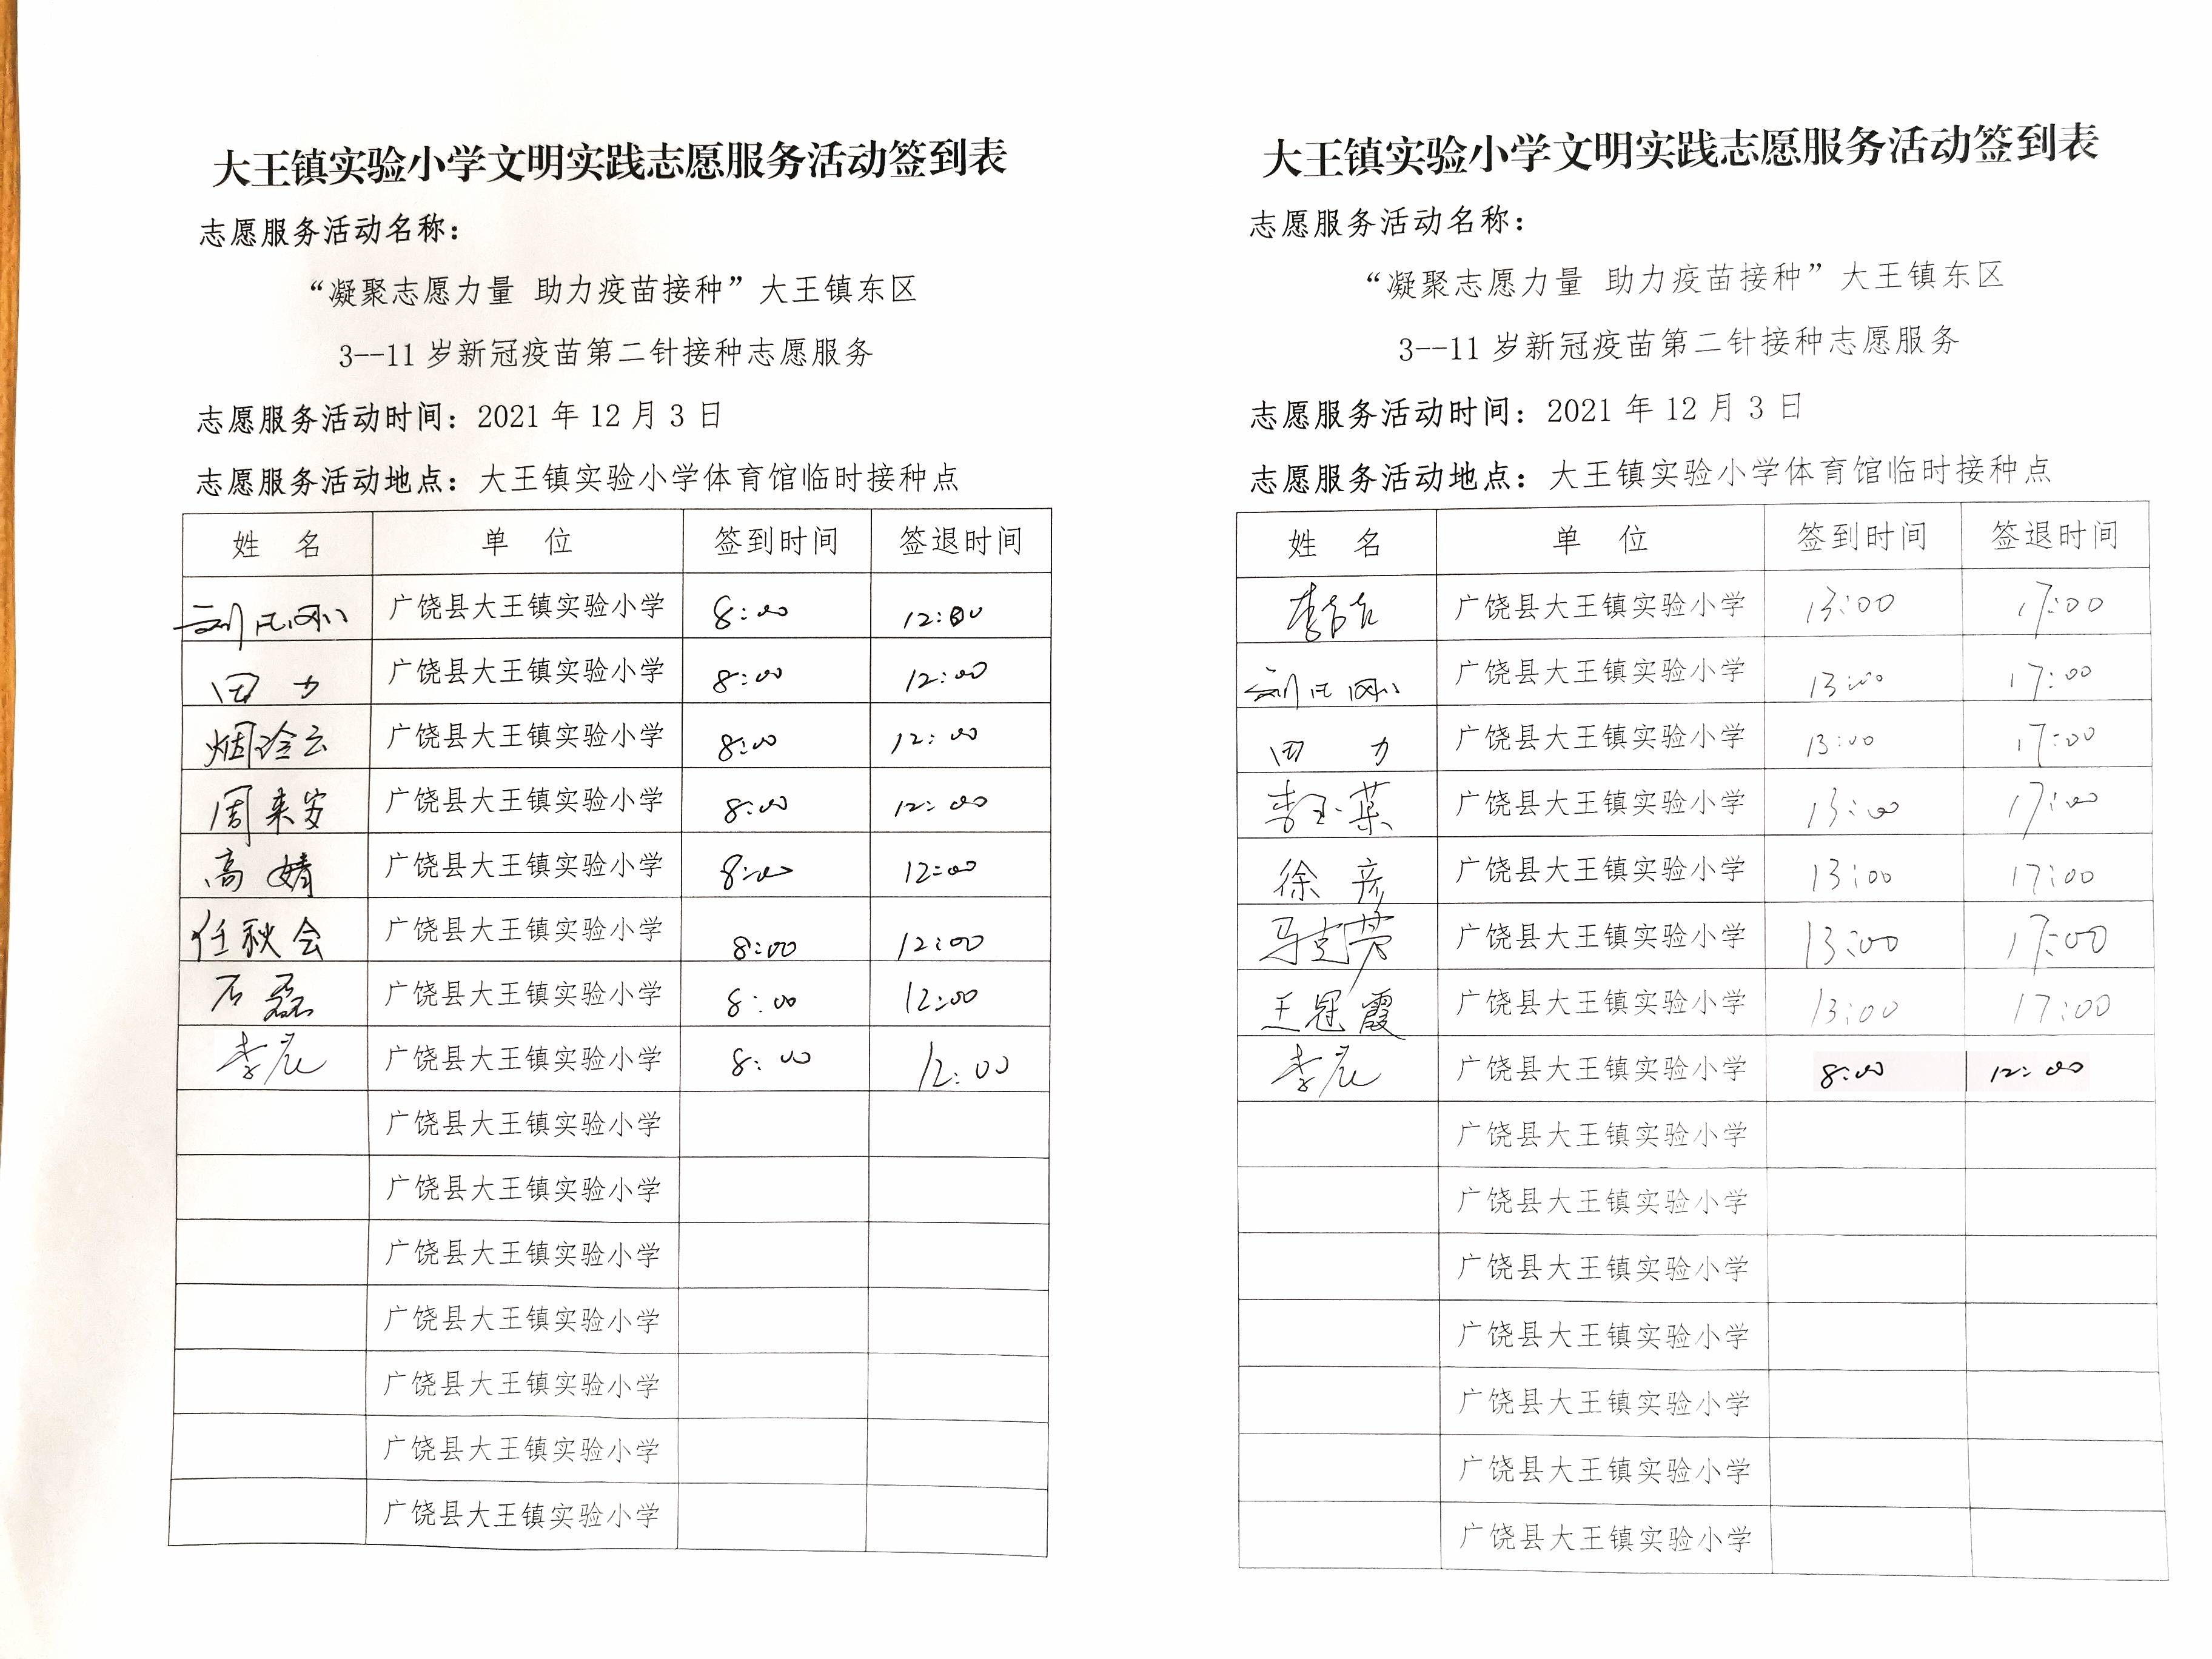 大王镇实验小学文明实践志愿服务活动签到表
志愿服务活动名称：
“凝聚志愿力量 助力疫苗接种”大王镇东区
3--11 岁新冠疫苗第二针接种志愿服务
志愿服务活动时间：2021 年 12 月 3 日
志愿服务活动地点：大王镇实验小学体育馆临时接种点
姓 名 单 位 签到时间 签退时间
广饶县大王镇实验小学 8:00 12:00
田 力 广饶县大王镇实验小学 8:00 12:00
广饶县大王镇实验小学 8:00 12:00
周来安 广饶县大王镇实验小学 8:00 12:00
高婧 广饶县大王镇实验小学 8:00 12:00
任秋会 广饶县大王镇实验小学 8:00 12:00
石磊 广饶县大王镇实验小学 8:00 12:00
李辰 广饶县大王镇实验小学 8:00 12:00
广饶县大王镇实验小学
广饶县大王镇实验小学
广饶县大王镇实验小学
广饶县大王镇实验小学
广饶县大王镇实验小学
广饶县大王镇实验小学
广饶县大王镇实验小学
大王镇实验小学文明实践志愿服务活动签到表
志愿服务活动名称：
“凝聚志愿力量 助力疫苗接种”大王镇东区
3--11 岁新冠疫苗第二针接种志愿服务
志愿服务活动时间：2021 年 12 月 3 日
志愿服务活动地点：大王镇实验小学体育馆临时接种点
姓 名 单 位 签到时间 签退时间
广饶县大王镇实验小学 13:00 17:00
广饶县大王镇实验小学 13:00 17:00
田 力 广饶县大王镇实验小学 13:00 17:00
李玉葉 广饶县大王镇实验小学 13:00 17:00
徐彦 广饶县大王镇实验小学 13:00 17:00
广饶县大王镇实验小学 13:00 17:00
王冠霞 广饶县大王镇实验小学 13:00 17:00
李辰 广饶县大王镇实验小学 8:00 12:00
广饶县大王镇实验小学
广饶县大王镇实验小学
广饶县大王镇实验小学
广饶县大王镇实验小学
广饶县大王镇实验小学
广饶县大王镇实验小学
广饶县大王镇实验小学